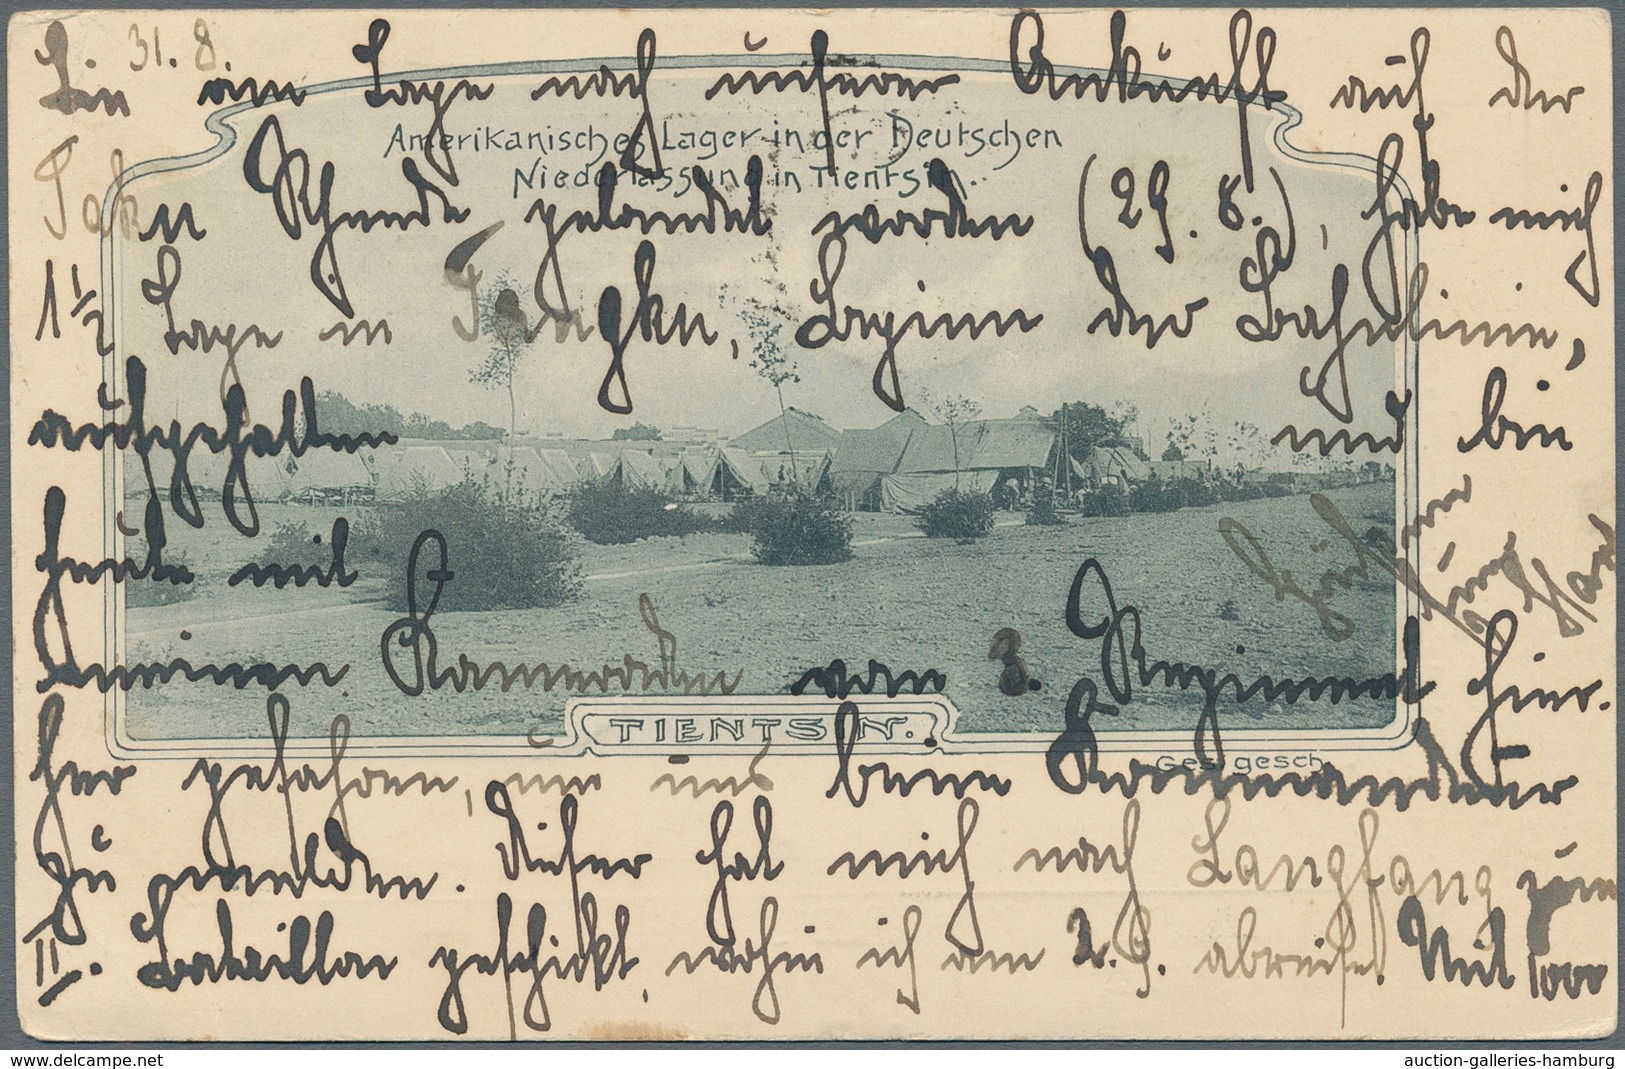 31. 8.
Bin am Tage nach unserer Ankunft auf der
Amerikanisches Lager in der Deutschen
Niederlassung in Tientsin.
Taku Rheede gelandet worden (29. 8.), habe mich
1 1/2 Tage in Tangku, Beginn der Bahnlinie,
aufgehalten und bin
heute mit
meinen Kameraden vom 3. Regiment hier-
TIENTSIN.
Ges. gesch.
her gefahren, um uns beim Kommandeur
zu melden. Dieser hat mich nach Langfang zum
II. Bataillon geschickt, wohin ich am 2. 9. abreise. Mit 1000
www.delcampe.net
auction-galleries-hamburg